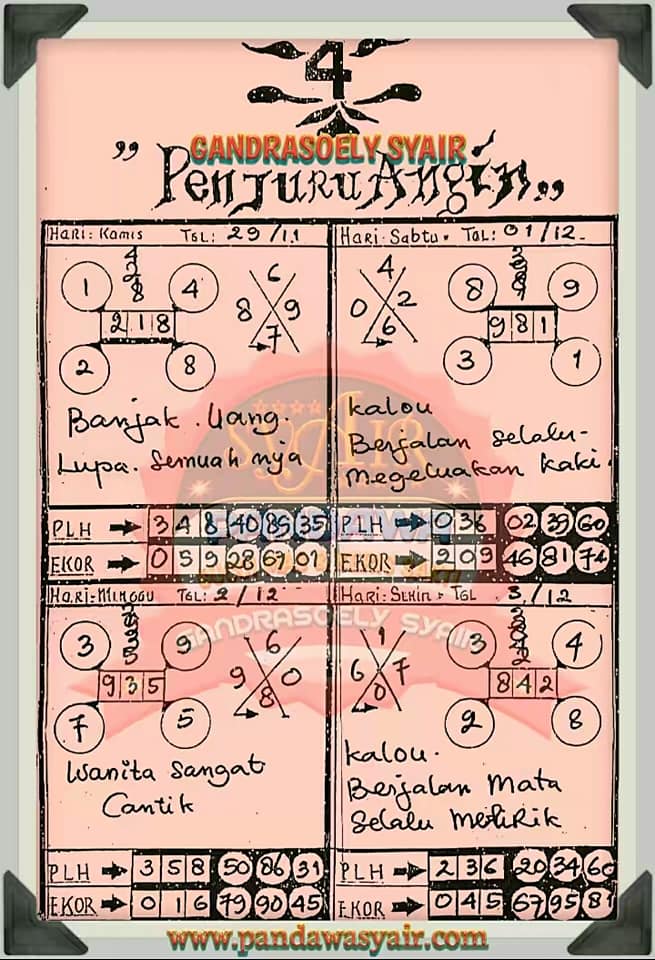 4
GANDRASOELY SYAIR
" Penjuru Angin "
Hari: Kamis Tgl: 29/11
1 4
218
2 8
6
8 9
7
Banjak . Uang.
Lupa. Semuah nja
PLH 3 4 8 40 85 35
EKOR 0 5 9 28 67 01
Hari: Sabtu. Tgl: 01/12
4
0 2
6
8 9
981
3 1
kalou
Berjalan selalu-
Megeluakan kaki.
PLH 0 3 6 02 39 60
EKOR 2 0 9 46 81 74
SYAIR
GANDRASOELY SYAIR
Hari: Minggu Tgl: 2/12
3 9
935
7 5
6
9 0
8
Wanita Sangat
Cantik
PLH 3 5 8 50 86 31
EKOR 0 1 6 79 90 45
Hari: Senin - Tgl 3/12
1
6 7
0
3 4
842
2 8
kalou.
Berjalan Mata
Selalu Melirik
PLH 2 3 6 20 34 60
EKOR 0 4 5 67 95 81
www.pandawasyair.com